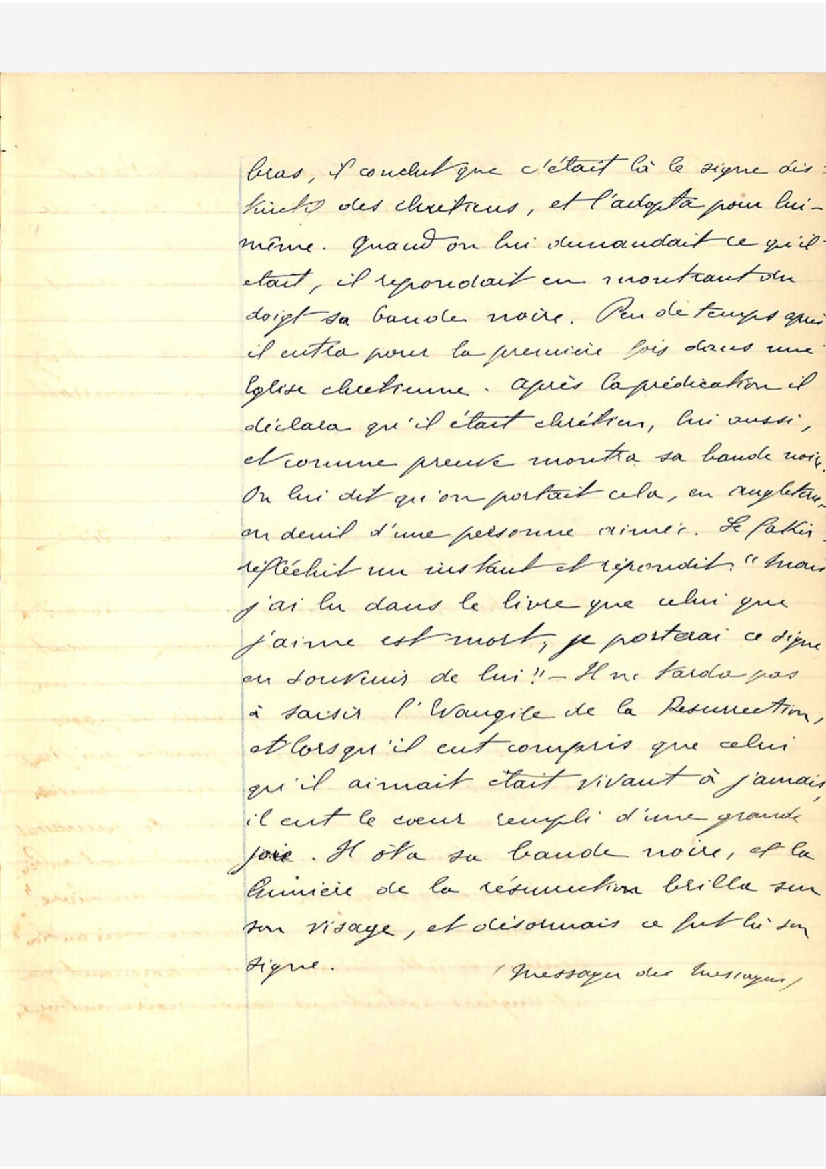 bras, il conclut que c'était là le signe dis-
tinctif des chretiens, et l'adopta pour lui-
même. Quand on lui demandait ce qu'il
etait, il repondait en montrant du
doigt sa bande noire. Peu de temps après
il entra pour la premiere fois dans une
Eglise chretienne. Après la prédication il
déclara qu'il était chrétien, lui aussi,
et comme preuve montra sa bande noire.
On lui dit qu'on portait cela, en Angleterre,
en deuil d'une personne aimée. Le fakir
réfléchit un instant et répondit: "Mais
j'ai lu dans le livre que celui que
j'aime est mort, je porterai ce signe
en souvenir de lui!! - Il ne tarda pas
à saisir l'Evangile de la Resurrection,
et lorsqu'il eut compris que celui
qu'il aimait était vivant à jamais,
il eut le coeur rempli d'une grande
joie. Il ôta sa bande noire, et la
lumière de la résurrection brilla sur
son visage, et désormais ce fut là son
signe. (Messager des Messagers)